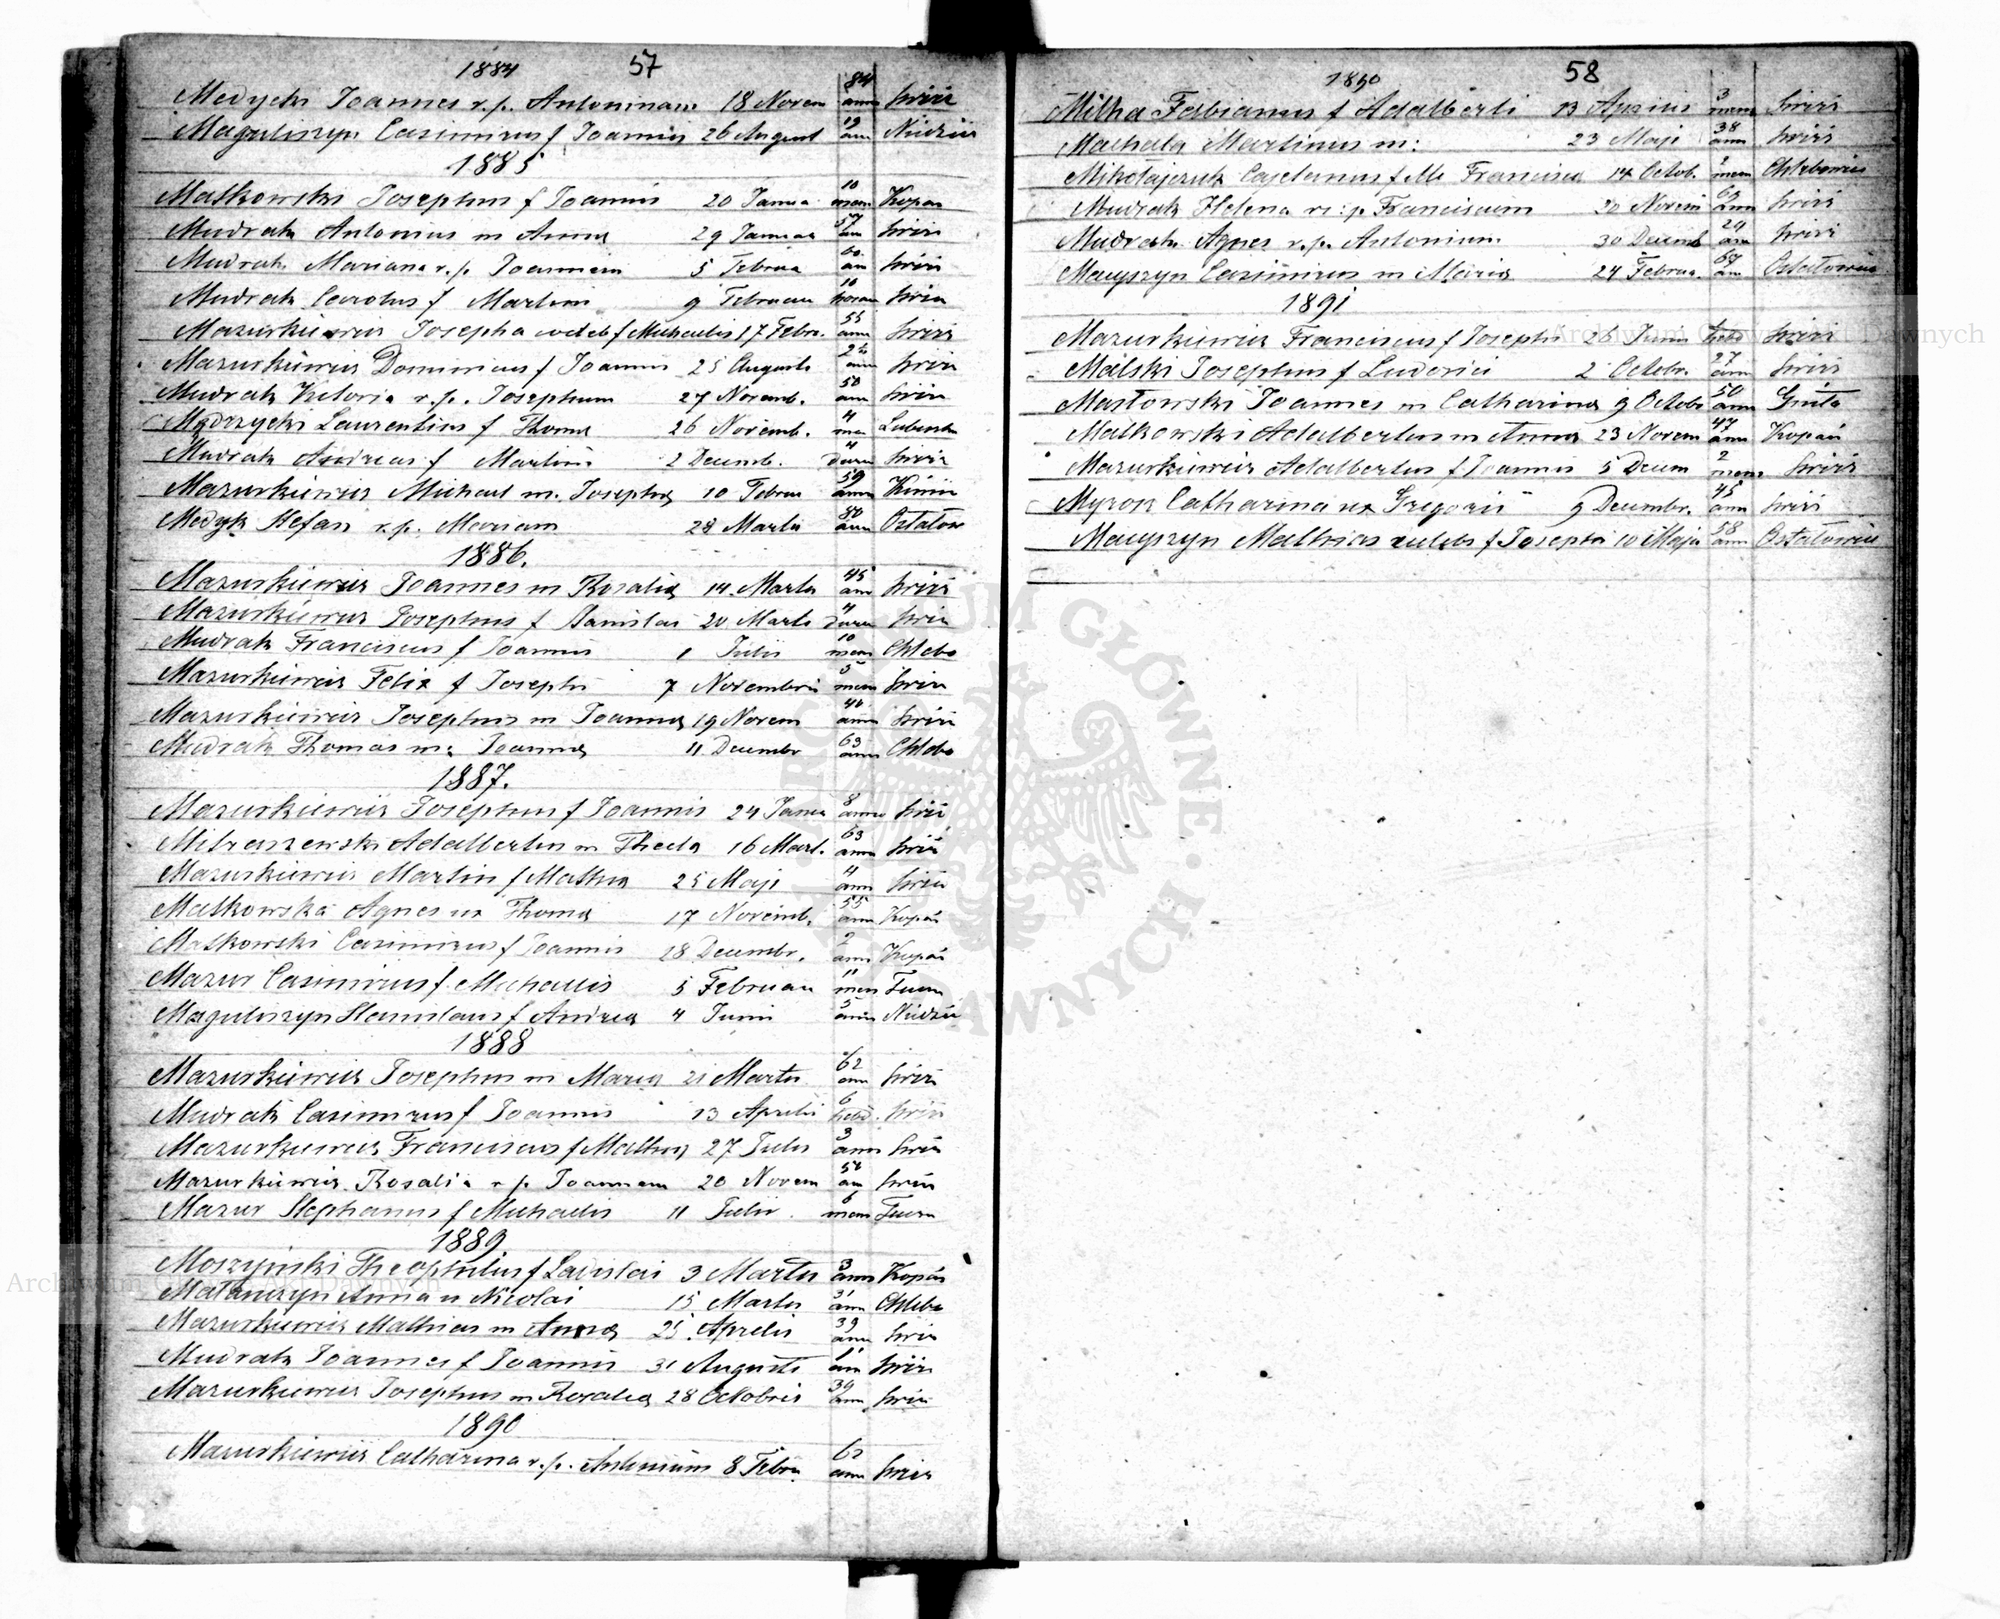 57
1884
Medycki Joannes v. p. Antoninam 18 Novem 84 ann Swirz
Maguliszyn Casimirus f Joannis 26 August 19 ann
1885
Matkowski Josephus f Joannis 20 Janua 10 Kopań
Mudrak Antonius m Anna 29 Januar 57 ann Swirz
Mudrak Mariana v. p. Joannem 5 Februa 60 an Swirz
Mudrak Carolus f Martini 9 Februar 10 horam Swirz
Mazurkiewicz Josepha coeleb f Michaelis 17 Febr. 55 ann Swirz
Mazurkiewicz Dominicus f Joannis 25 Augusti ann Swirz
Mudrak Victoria v. p. Josephum 27 Novemb. 50 ann Swirz
Mędrzycki Laurentius f Thoma 26 Novemb. 4 men
Mudrak Andreas f Martini 2 Decemb. 4 Swirz
Mazurkiewicz Michael m. Josepha 10 Februa 59 ann
Medyk Stefan v. p. Mariam 28 Martii 80 ann Ostałow
1886.
Mazurkiewicz Joannes m Rosalia 14. Martii 45 ann Swirz
Mazurkiewicz Josephus f Stanislai 20 Martii 4 Swirz
Mudrak Franciscus f Joannis 1 Julii 10 mens Chlebo
Mazurkiewicz Felix f Josephi 7 Novembris 5 mens Swirz
Mazurkiewicz Josephus m Joanna 19 Novem 40 ann Swirz
Mudrak Thomas m. Joanna 11 Decembr 63 ann Chlebo
1887.
Mazurkiewicz Josephus f Joannis 24 Janua 8 anno Swirz
Mitraszewski Adalbertus m Thecla 16 Mart. 63 ann Swirz
Mazurkiewicz Martin f Mathia 25 Maji 4 ann Swirz
Matkowska Agnes ux Thoma 17 Novemb. 55 ann Kopań
Matkowski Casimirus f Joannis 28 Decembr. 2 ann Kopań
Mazur Casimirus f. Michaelis 5 Februari 11 men
Maguliszyn Stanislaus f Andrea 4 Junii 5 annis
1888
Mazurkiewicz Josephus m Maria 21 Martii 62 ann Swirz
Mudrak Casimirus f Joannis 13 Aprilis 6 hebd. Swirz
Mazurkiewicz Franciscus f Mathia 27 Julii 3 ann Swirz
Mazurkiewicz Rosalia v p Joannem 20 Novem an Swirz
Mazur Stephanus f Michaelis 11 Julii 6 mens
1889
Moszyński Theophilus f Ladislai 3 Martii 3 ann Kopań
Anna u Nicolai 15 Martii 31 ann Chlebo
Mazurkiewicz Mathias m Anna 25 Aprilis 39 ann Swirz
Mudrak Joannes f Joannis 31 Augusti ann Swirz
Mazurkiewicz Josephus m Rosalia 28 Octobris ann Swirz
1890
Mazurkiewicz Catharina v. p. Antonium 8 Febru ann Swirz
58
1890
Milka Fabianus f Adalberti 13 Aprilis 3 mens Swirz
Machala Martinus m: 23 Maji 38 ann Swirz
Mikołajczuk Cajetanus f Francisca 14 Octob. mens Chlebowice
Mudrak Helena v: p Franciscum 20 Novem ann Swirz
Mudrak Agnes v. p. Antonium 30 Decemb ann Swirz
Casimirus m Maria 24 Februa. ann Ostałowice
1891
Mazurkiewicz Franciscus f Josephi 26 Junii hebd Swirz
Malski Josephus f Ludovici 2 Octobr. 27 ann Swirz
Masłowski Joannes m Catharina 9 Octobr 50 ann
Matkowski Adalbertus m Anna 23 Novem 47 ann Kopań
Mazurkiewicz Adalbertus f. Joannis 5 Decem 2 mens Swirz
Myron Catharina ux Gregorii 9 Decembr. 45 ann Swirz
Mathias coeleb f Josephi 10 Maja 58 ann Ostałowice
ARCHIWUM GŁÓWNE AKT DAWNYCH
Archiwum Główne Akt Dawnych
Archiwum Główne Akt Dawnych